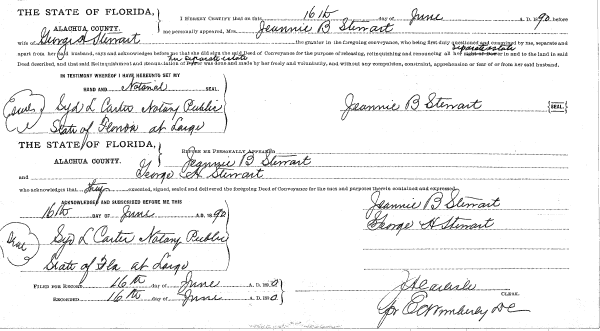 THE STATE OF FLORIDA,
ALACHUA COUNTY.
I HEREBY CERTIFY that on this 16th day of June A. D. 1890, before
me personally appeared, Mrs. Jeannie B Stewart
wife of George H Stewart the grantor in the foregoing conveyance, who being first duly questioned and examined by me, separate and
apart from her said husband, says and acknowledges before me that she did sign the said Deed of Conveyance for the purpose of releasing, relinquishing and renouncing all her right of dower in and to the land in said
separate estate
her separate estate
Deed described, and that said Relinquishment and Renunciation of Dower was done and made by her freely and voluntarily, and without any compulsion, constraint, apprehension or fear of or from her said husband.
IN TESTIMONY WHEREOF I HAVE HEREUNTO SET MY
HAND AND Notarial SEAL.
Syd L Carter Notary Public
State of Florida at Large
Jeannie B Stewart
SEAL.
THE STATE OF FLORIDA,
ALACHUA COUNTY.
BEFORE ME PERSONALLY APPEARED Jeannie B Stewart
and George H Stewart
who acknowledges that they executed, signed, sealed and delivered the foregoing Deed of Conveyance for the uses and purposes therein contained and expressed.
ACKNOWLEDGED AND SUBSCRIBED BEFORE ME THIS
16th DAY OF June A.D. 1890
Jeannie B Stewart
George H Stewart
Seal
Syd L Carter Notary Public
State of Fla at Large
FILED FOR RECORD 16th day of June A. D. 1890
RECORDED 16th day of June A. D. 1890
CLERK.
pr E Wimberly DC